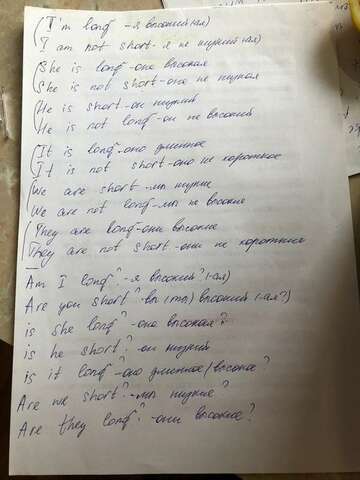 (I'm long - я высокий (-ая)
I am not short - я не низкий (-ая)
(She is long - она высокая
She is not short - она не низкая
(He is short - он низкий
He is not long - он не высокий
(It is long - оно длинное
It is not short - оно не короткое
(We are short - мы низкие
We are not long - мы не высокие
(They are long - они высокие
They are not short - они не короткие
Am I long? - я высокий? (-ая)
Are you short? - вы (ты) высокий (-ая?)
is she long? - она высокая?
is he short? - он низкий
is it long? - оно длинное/высокое?
Are we short? - мы низкие?
Are they long? - они высокие?